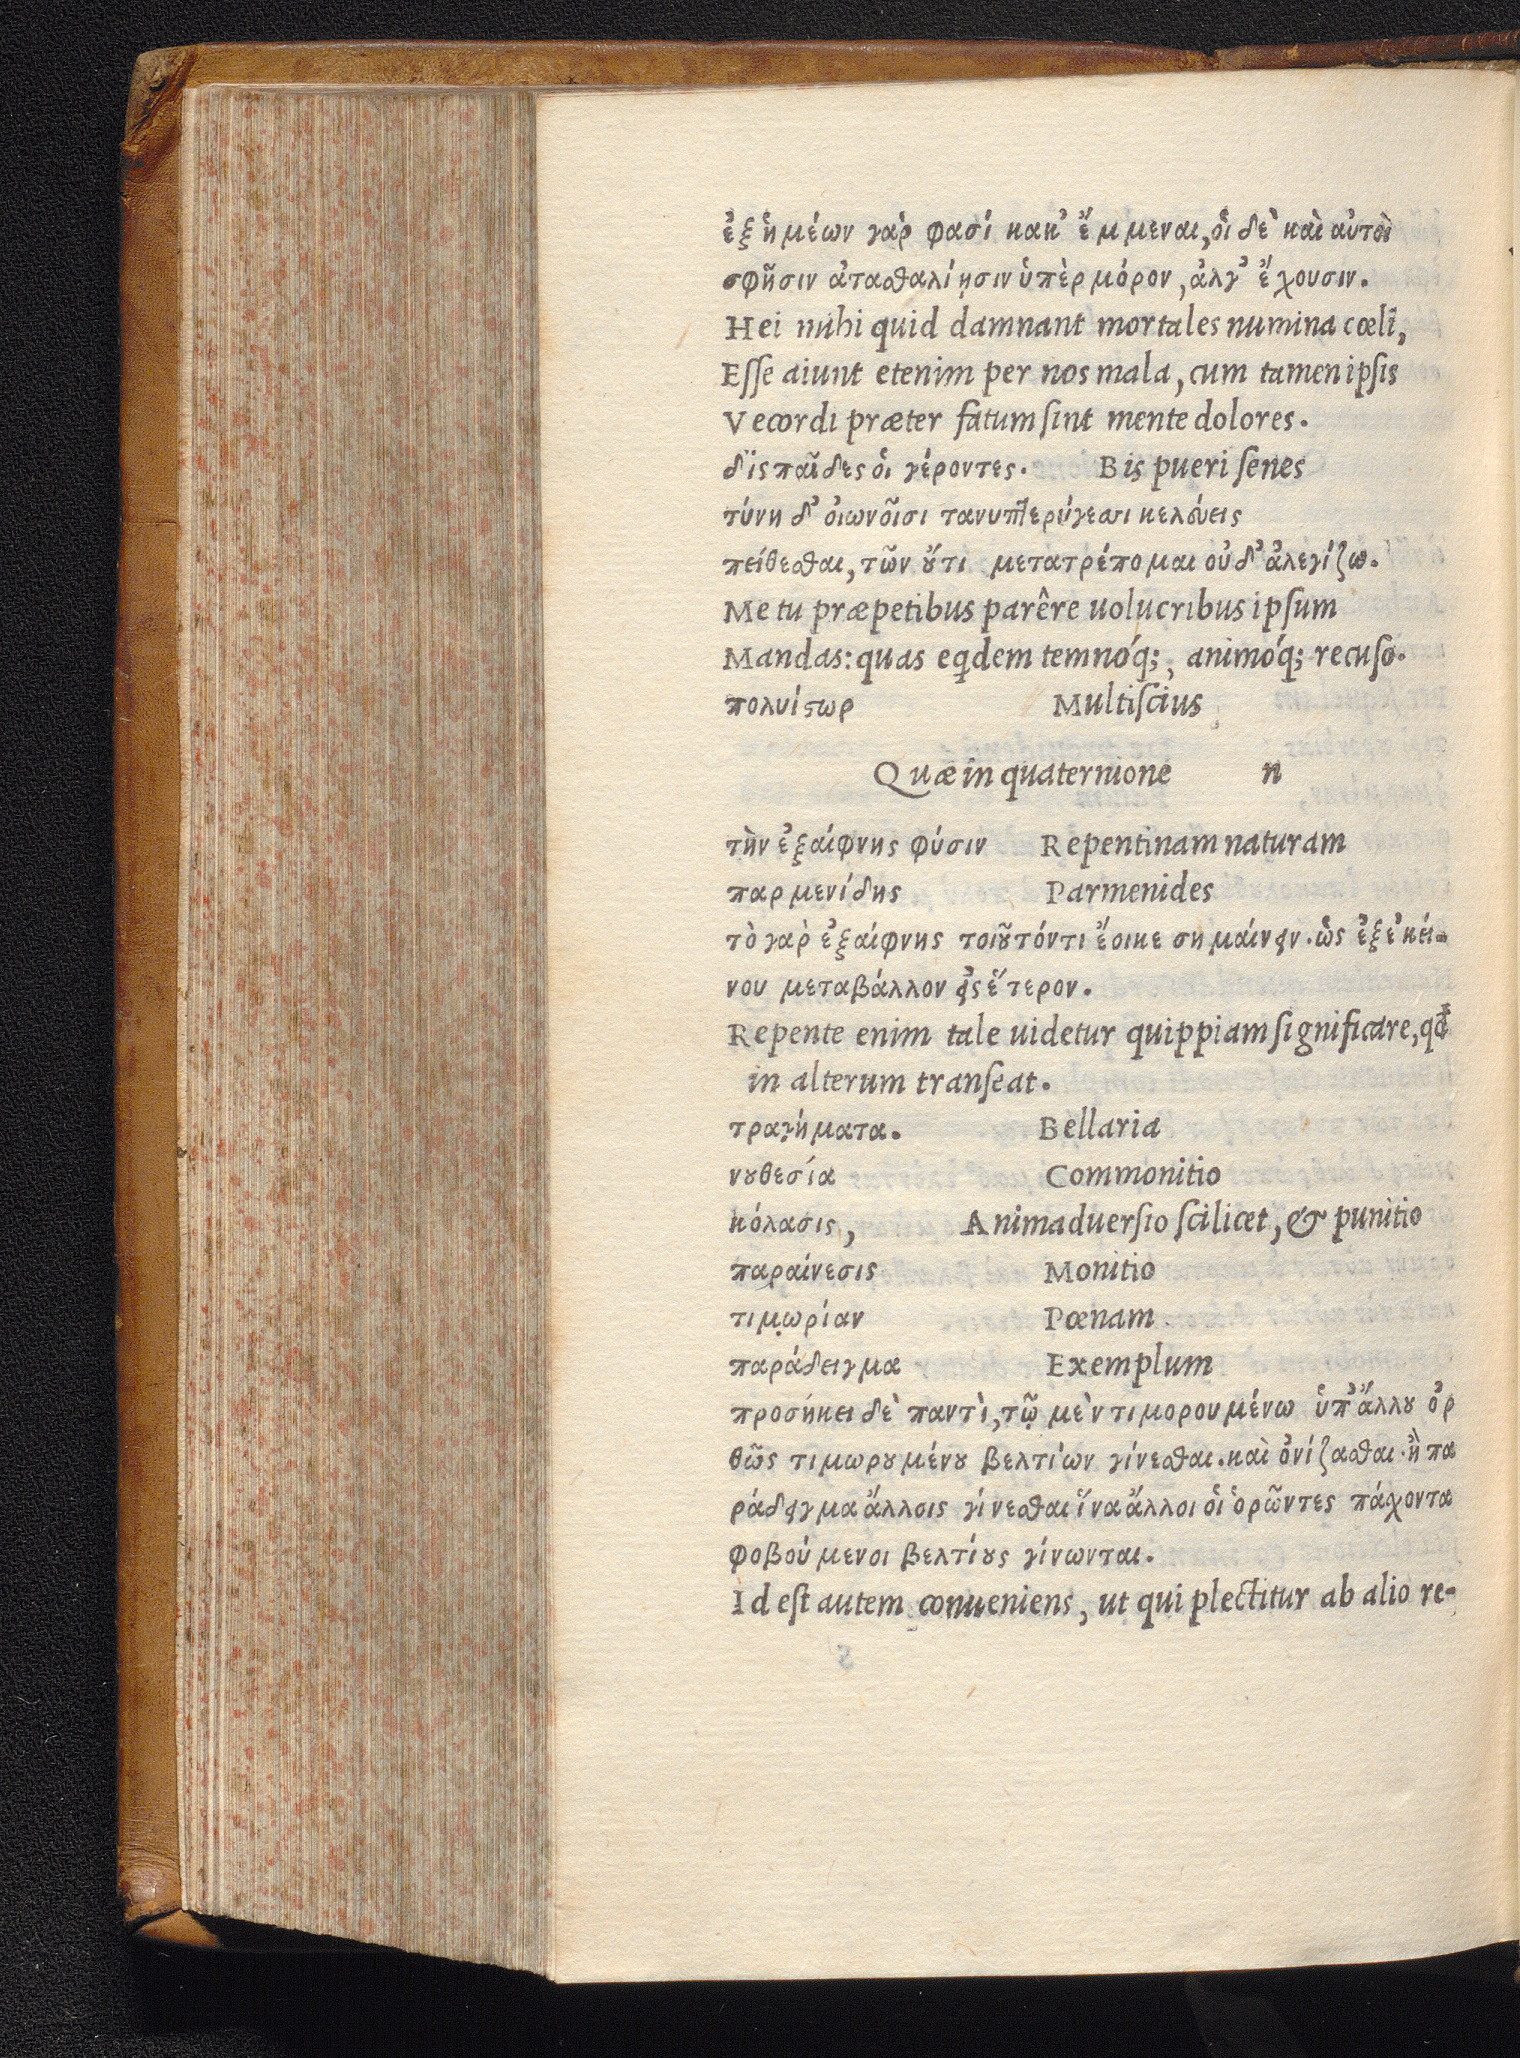 ἐξ ἡμέων γὰρ φασί κακ᾽ ἔμμεναι, οἱ δὲ καὶ αὐτοὶ
σφῇσιν ἀτασθαλίῃσιν ὑπὲρ μόρον, ἀλγ᾽ ἔχουσιν.
Hei mihi quid damnant mortales numina cœli,
Eſſe aiunt etenim per nos mala, cum tamen ipſis
Vecordi præter fatum ſint mente dolores.
δὶς παῖδες οἱ γέροντες. Bis pueri ſenes
τύνη δ᾽ οἰωνοῖσι τανυπτερύγεσσι κελεύεις
πείθεσθαι, τῶν ȣ̓́τι μετατρέπομαι οὐδ᾽ ἀλεγίζω.
Me tu præpetibus parêre uolucribus ipſum
Mandas: quas eqdem temnóq;, animóq; recuſo.
πολυίϛωρ Multiſcius
Quæ in quaternione n
τὴν ἐξαίφνης φύσιν Repentinam naturam
παρμενίδης Parmenides
τὸ γὰρ ἐξαίφνης τοιȣ͂τόντι ἔοικε σημαίνειν. ὡς ἐξ ἐκεί-
νου μεταβάλλον εἰς ἕτερον.
Repente enim tale uidetur quippiam ſignificare, qđ
in alterum tranſeat.
τραγήματα. Bellaria
νȣθεσία Commonitio
κόλασις, Animaduerſio ſcilicet, & punitio
παραίνεσις Monitio
τιμωρίαν Pœnam
παράδειγμα Exemplum
προσήκει δὲ παντὶ, τῷ μὲν τιμορουμένω ὑπ᾽ ἄλλȣ ὀρ
θῶς τιμωρȣμένȣ βελτίων γίνεσθαι. καὶ ὀνίζασθαι. ἢ πα
ράδειγμα ἄλλοις γίνεσθαι ἵνα ἄλλοι οἱ ὁρῶντες πάχοντα
φοβούμενοι βελτίȣς γίνωνται.
Id eſt autem conueniens, ut qui plectitur ab alio re-